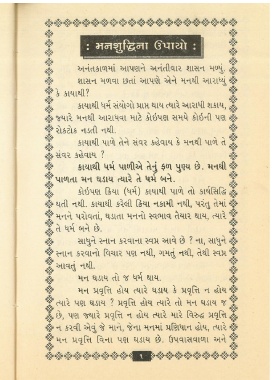 : મનશુદ્ધિના ઉપાયો :
અનંતકાળમાં આપણને અનંતીવાર શાસન મળ્યું.
શાસન મળવા છતાં આપણે એને મનથી આરાધ્યું
કે કાયાથી?
કાયાથી ધર્મ સંયોગો પ્રાપ્ત થાય ત્યારે આરાધી શકાય,
જ્યારે મનથી આરાધવા માટે કોઇપણ સમયે કોઇની પણ
રોકટોક નડતી નથી.
કાયાથી પાળે તેને સંવર કહેવાય કે મનથી પાળે તે
સંવર કહેવાય ?
કાયાથી ધર્મ પાળીએ તેનું ફળ પુણ્ય છે. મનથી
પાળતા મન ઘડાય ત્યારે તે ધર્મ બને.
કોઇપણ ક્રિયા (ધર્મ) કાયાથી પાળે તો કાર્યસિદ્ધિ
થતી નથી. કાયાથી કરેલી ક્રિયા નકામી નથી, પરંતુ તેમાં
મનને પરોવતાં, ઘડાતા મનનો સ્વભાવ તૈયાર થાય, ત્યારે
તે ધર્મ બને છે.
સાધુને સ્નાન કરવાના સ્વપ્ન આવે છે ? ના, સાધુને
સ્નાન કરવાનો વિચાર પણ નથી, ગમતું નથી, તેથી સ્વપ્ન
આવતું નથી.
મન ઘડાય તો જ ધર્મ થાય.
મન પ્રવૃત્તિ હોય ત્યારે ઘડાય કે પ્રવૃત્તિ ન હોય
ત્યારે પણ ઘડાય ? પ્રવૃત્તિ હોય ત્યારે તો મન ઘડાય જ
છે, પણ જ્યારે પ્રવૃત્તિ ન હોય ત્યારે મારે વિરુદ્ધ પ્રવૃત્તિ
ન કરવી એવું જે માને, જેના મનમાં પ્રણિધાન હોય, ત્યારે
મન પ્રવૃત્તિ વિના પણ ઘડાય છે. ઉપવાસવાળા અને
૧